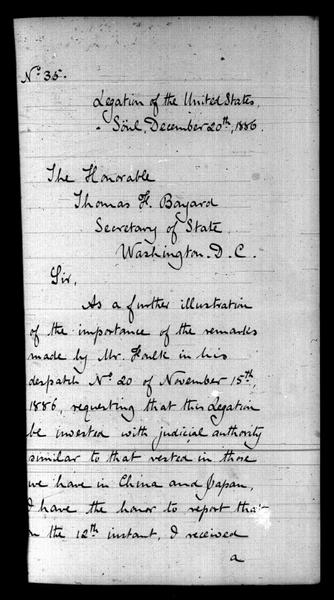 No. 35.
Legation of the United States,
Söul, December 20th, 1886.
The Honorable
Thomas F. Bayard
Secretary of State
Washington. D. C.
Sir,
As a further illustration
of the importance of the remarks
made by Mr. Foulk in his
despatch No. 20 of November 15th,
1886, requesting that this Legation
be invested with judicial authority
similar to that vested in those
we have in China and Japan,
I have the honor to report that
on the 12th instant, I received
a